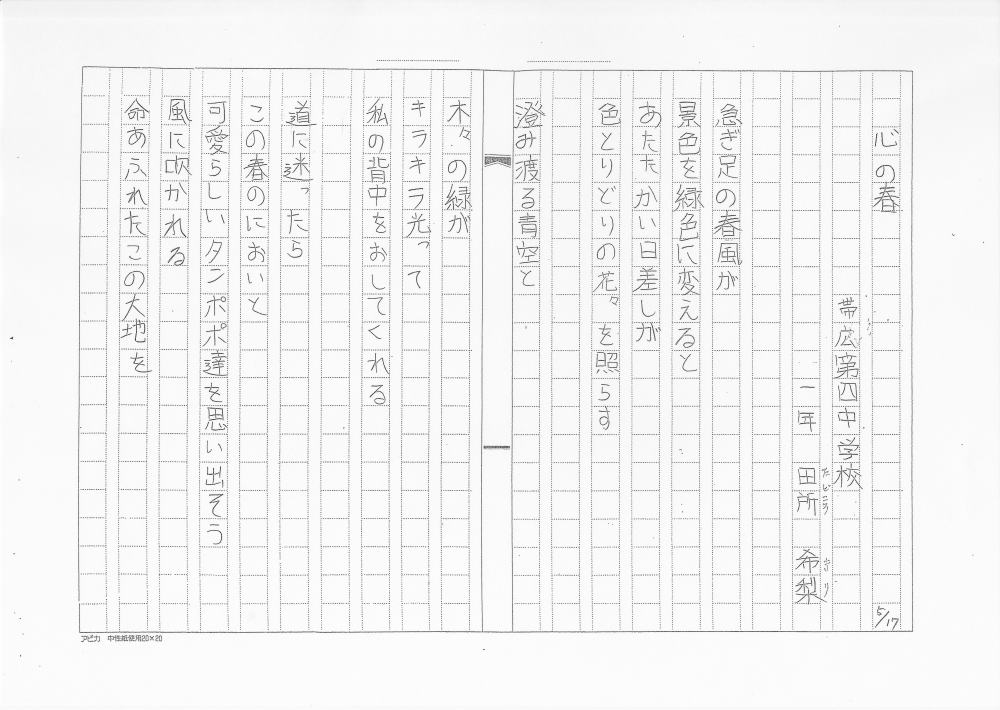 心の春
帯広第四中学校
一年 田所 希梨
たどころ きり
急ぎ足の春風が
景色を緑色に変えると
あたたかい日差しが
色とりどりの花々を照らす
澄み渡る青空と
木々の緑が
キラキラ光って
私の背中をおしてくれる
道に迷ったら
この春のにおいと
可愛らしいタンポポ達を思い出そう
風に吹かれる
命あふれたこの大地を
5/17
アピカ 中性紙使用20×20